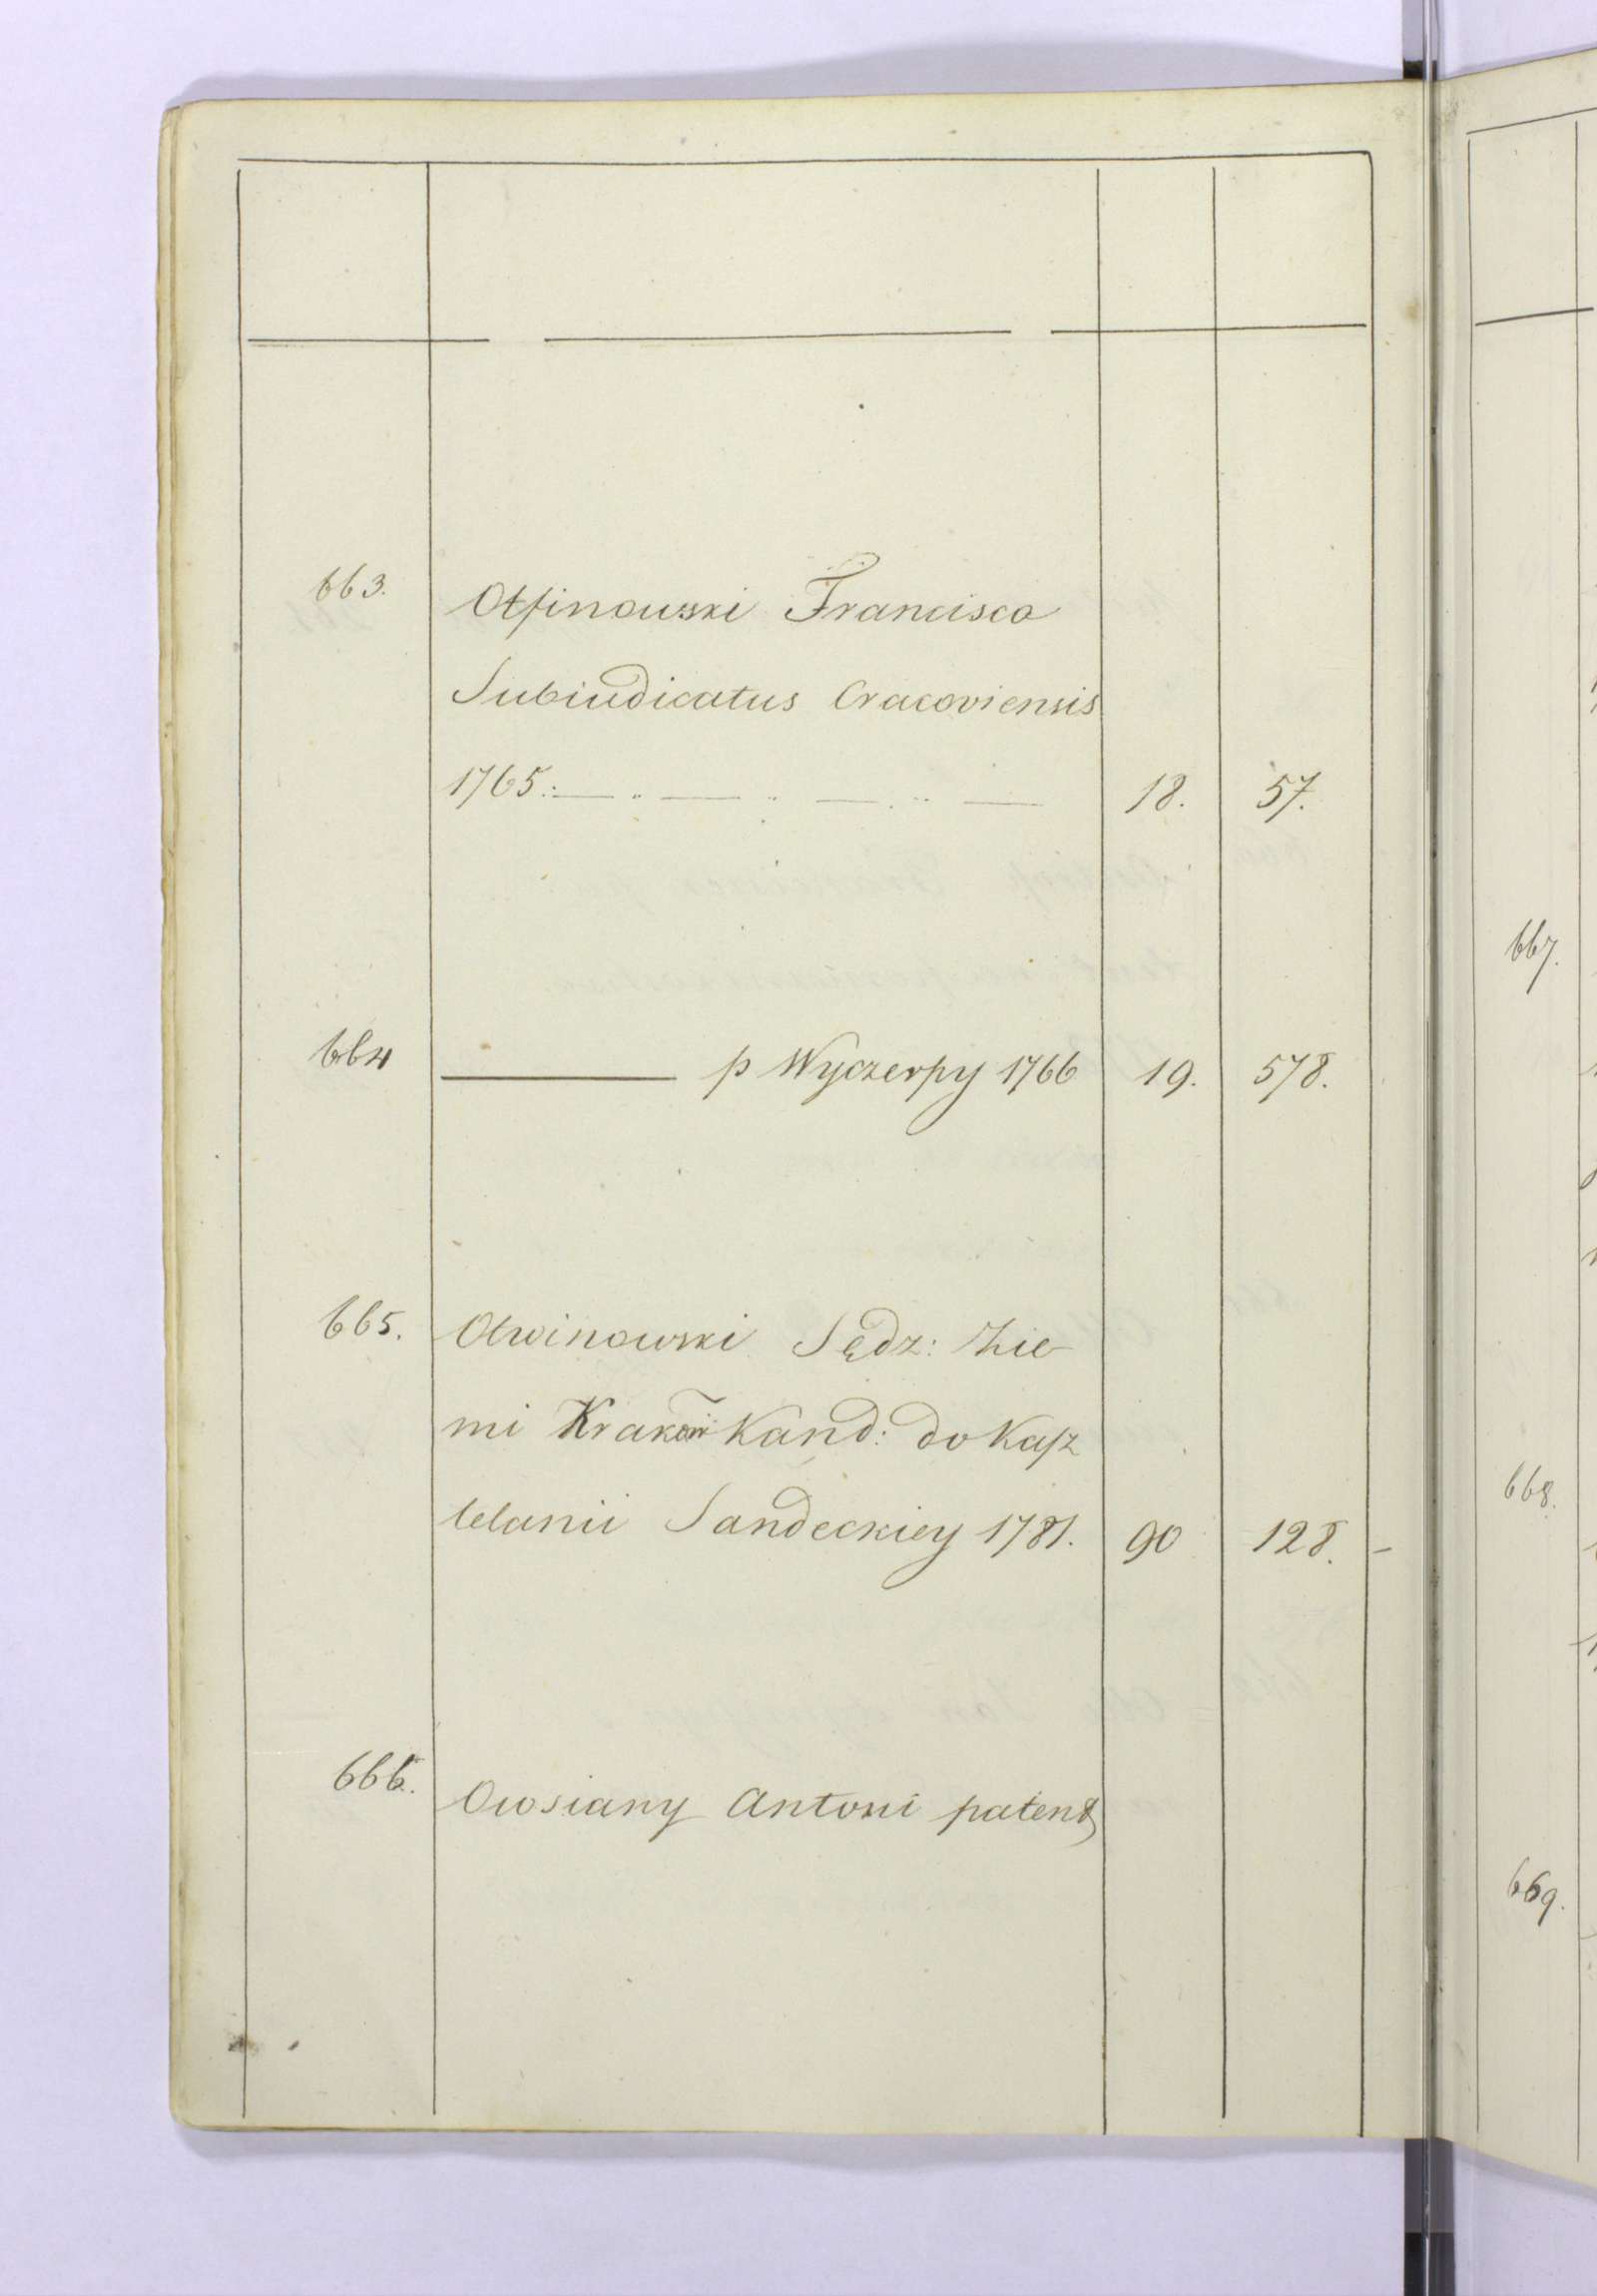 663. Otfinowski Francisco
Subiudicatus Cracoviensis
1765.:— .. — .. — . .. — 18. 57.
664 ——— p Wyczerpy 1766 19. 578.
665. Otwinowski Sędz: Zie-
mi Krakow Kand: do Kasz
telanii Sandeckiey 1781. 90 128. -
666. Owsiany Antoni patent
667.
668.
669.